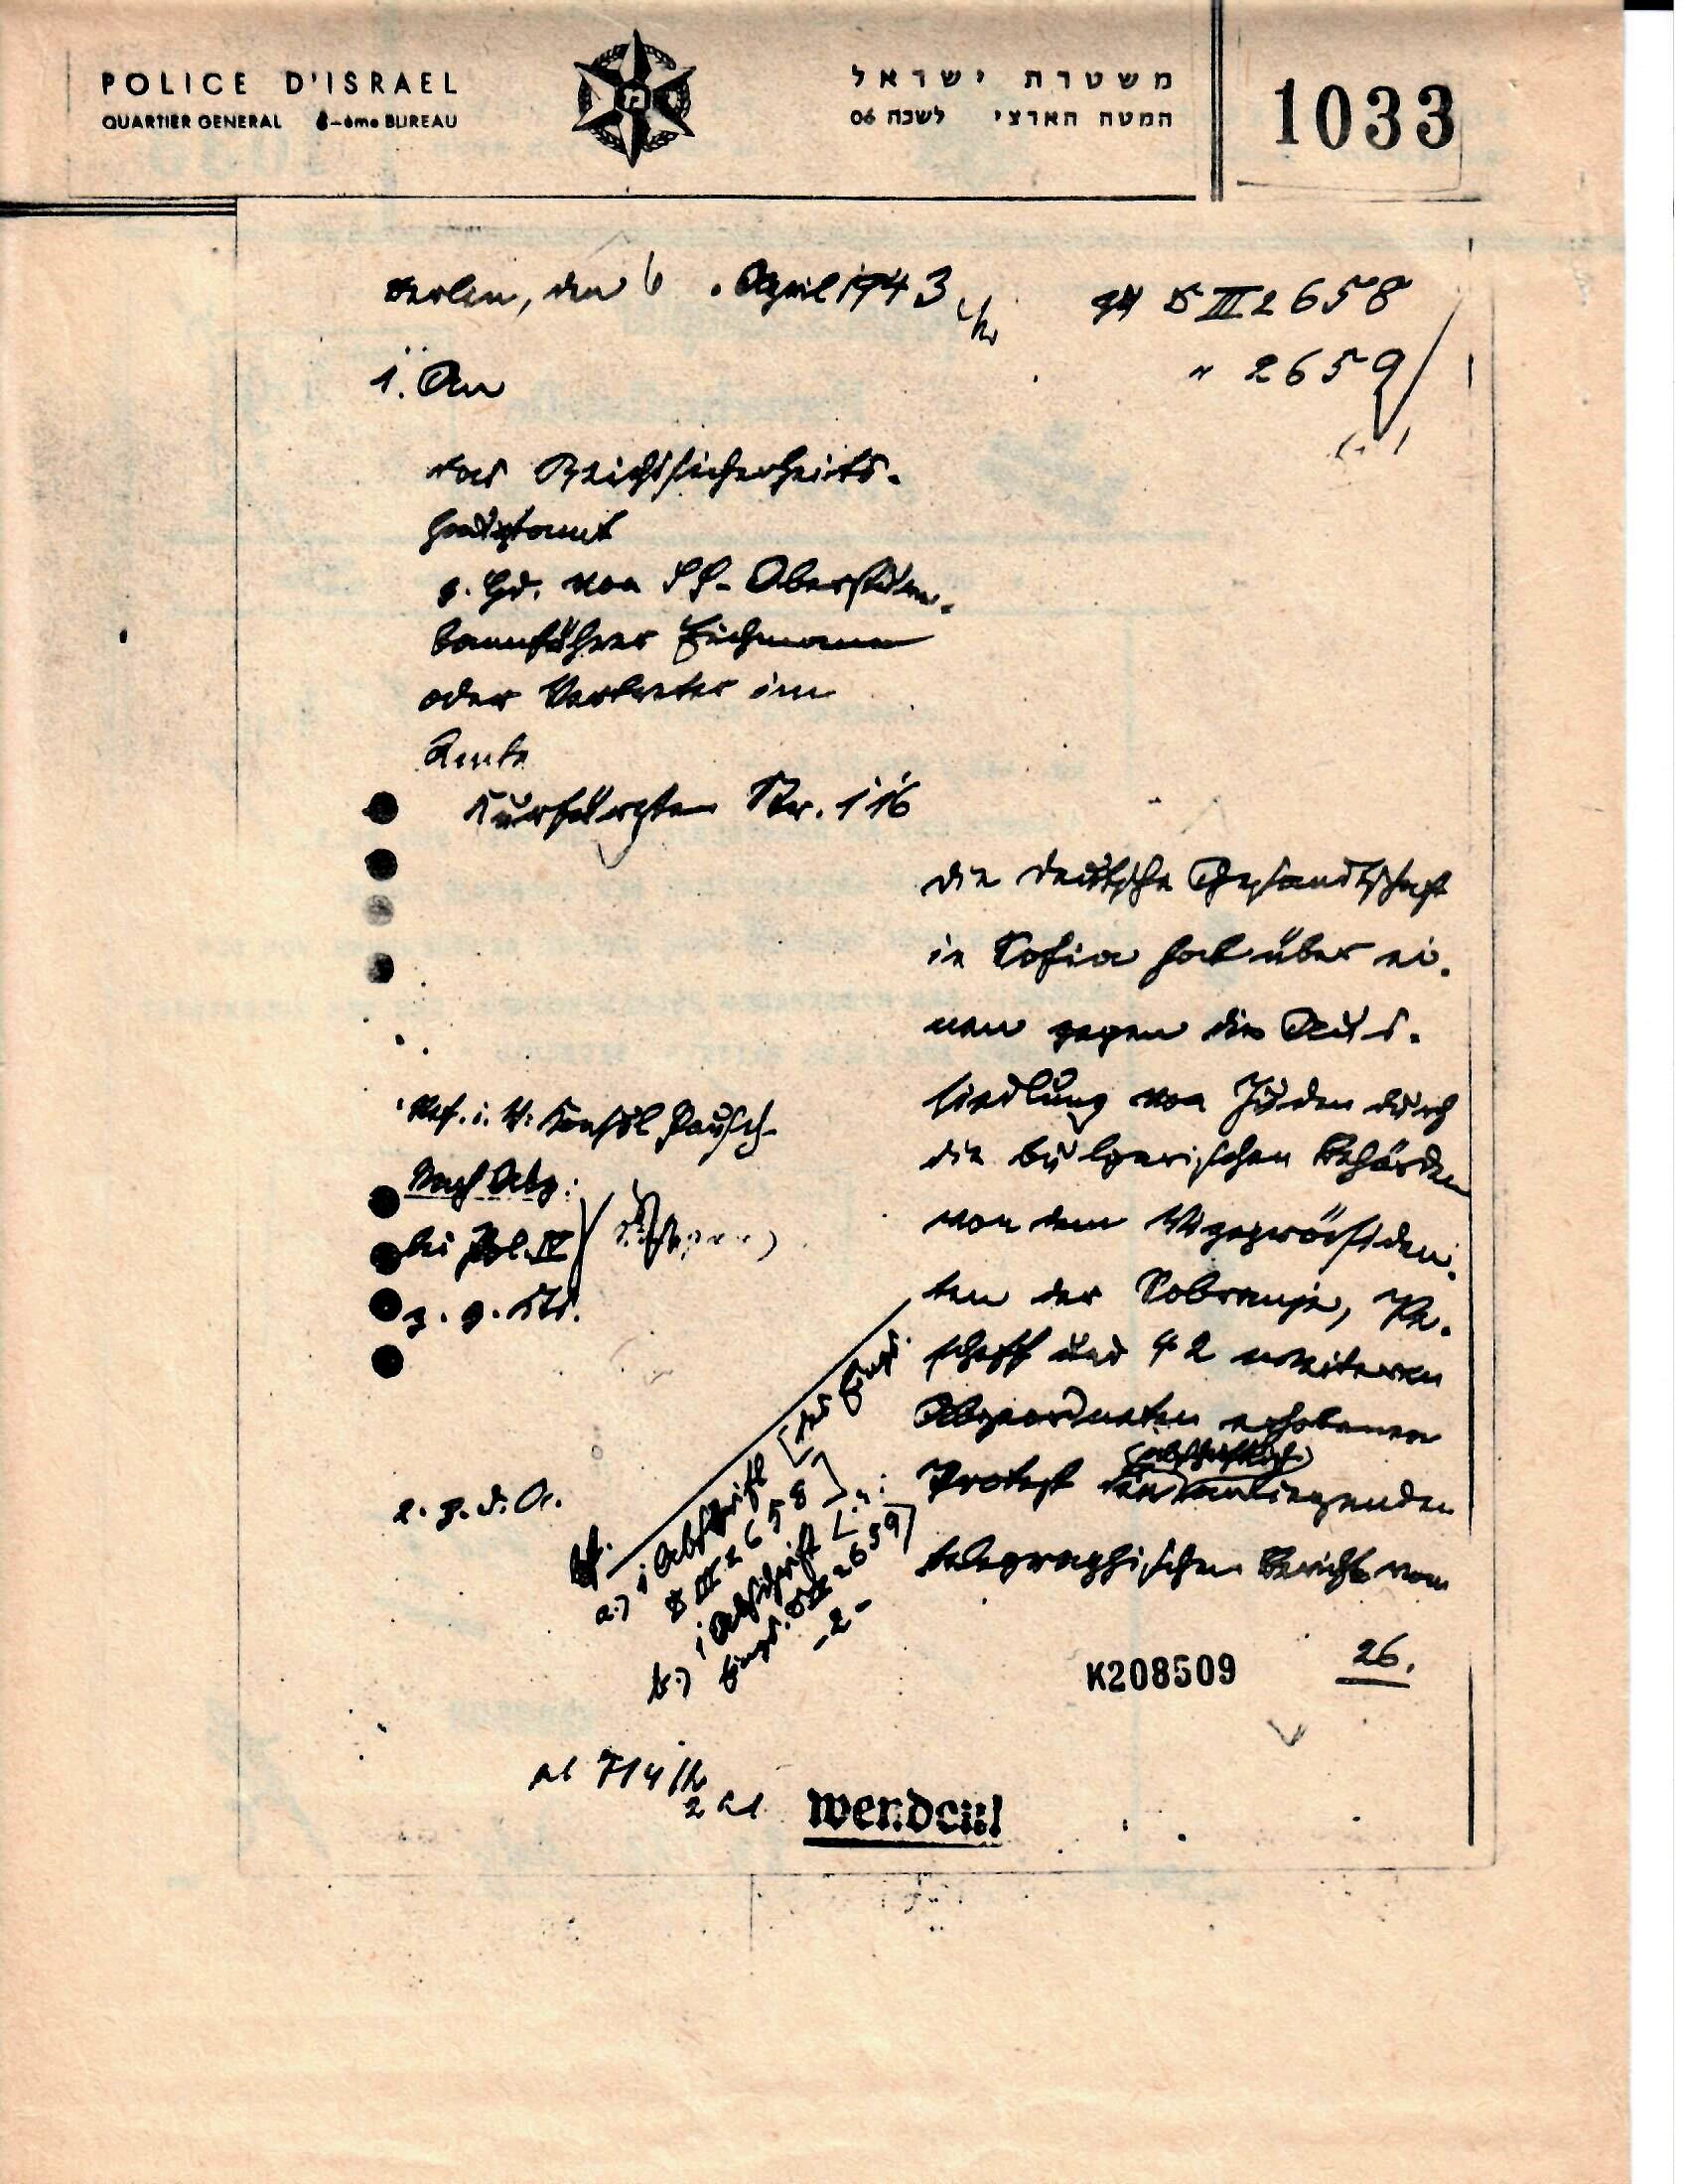 POLICE D'ISRAEL
QUARTIER GENERAL 6-ème BUREAU
משטרת ישראל
המטה הארצי לשכה 06
1033
Berlin, den 6. April 1943
zu D III 2658
" 2659
1. An
das Reichssicherheits-
hauptamt
z. Hd. von SS-Obersturm-
bannführer Eichmann
oder Vertreter im
Amte
Kurfürsten Str. 116
Die Deutsche Gesandtschaft
in Sofia hat über ei-
nen gegen die Aus-
siedlung von Juden durch
die bulgarischen Behörden
von dem Vizepräsiden-
ten der Sobranje, Pe-
scheff und 42 weiteren
Abgeordneten erhobenen
Protest den (abschriftlich) anliegenden
telegraphischen Bericht vom
26.
Ref. i. V. Konsul Pausch
Nach Abg:
bei Pol. IV
z. g. Ktn.
2. z. d. A.
a.) 1 Abschrift
D III 2658
b.) 1 Abschrift
Eing. D III 2659
-2-
K208509
ab 7/4
wenden!